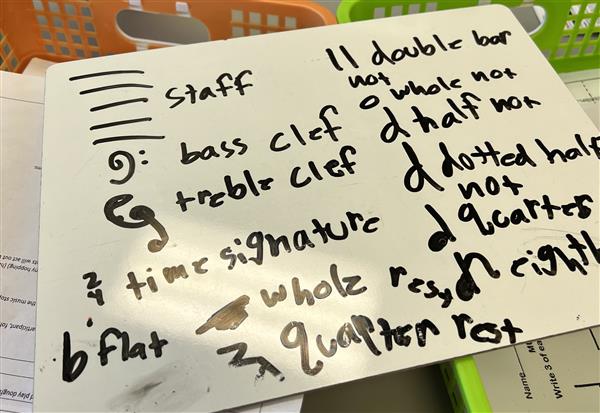 staff
bass clef
treble clef
2/4 time signature
b flat
whole rest
quarter rest
double bar
not
whole not
half not
dotted half
not
quarter
eighth
Name
Write 3 of ea